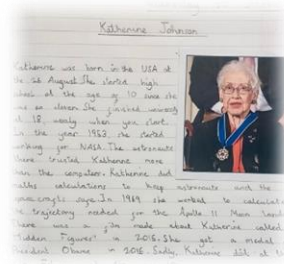 Katherine Johnson
Katherine was born in the USA on
the 26 August. She started high
school at the age of 10 since she
was so clever. She finished university
at 18, usually when you start.
In the year 1953, she started
working for NASA. The astronauts
there trusted Katherine more
than the computers. Katherine did
maths calculations to keep astronauts and the
safe. In 1969 she worked to calculate
the trajectory needed for the Apollo 11 Moon
There was a film made about Katherine called
"Hidden Figures" in 2016. She got a medal
President Obama 2016. Sadly, Katherine died at the